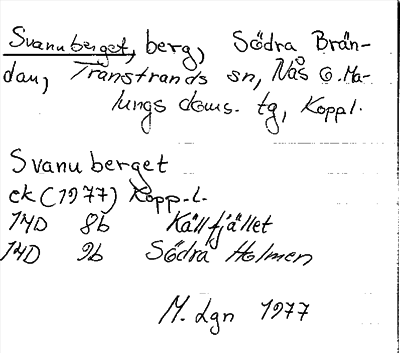 Svanuberget, berg, Södra Brän-
dan, Transtrands sn, Nås o. Ma-
lungs doms. tg, Koppl.
Svanuberget
ek (1977) Kopp.l.
14D 8b Källfjället
14D 9b Södra Holmen
M. Lgn 1977